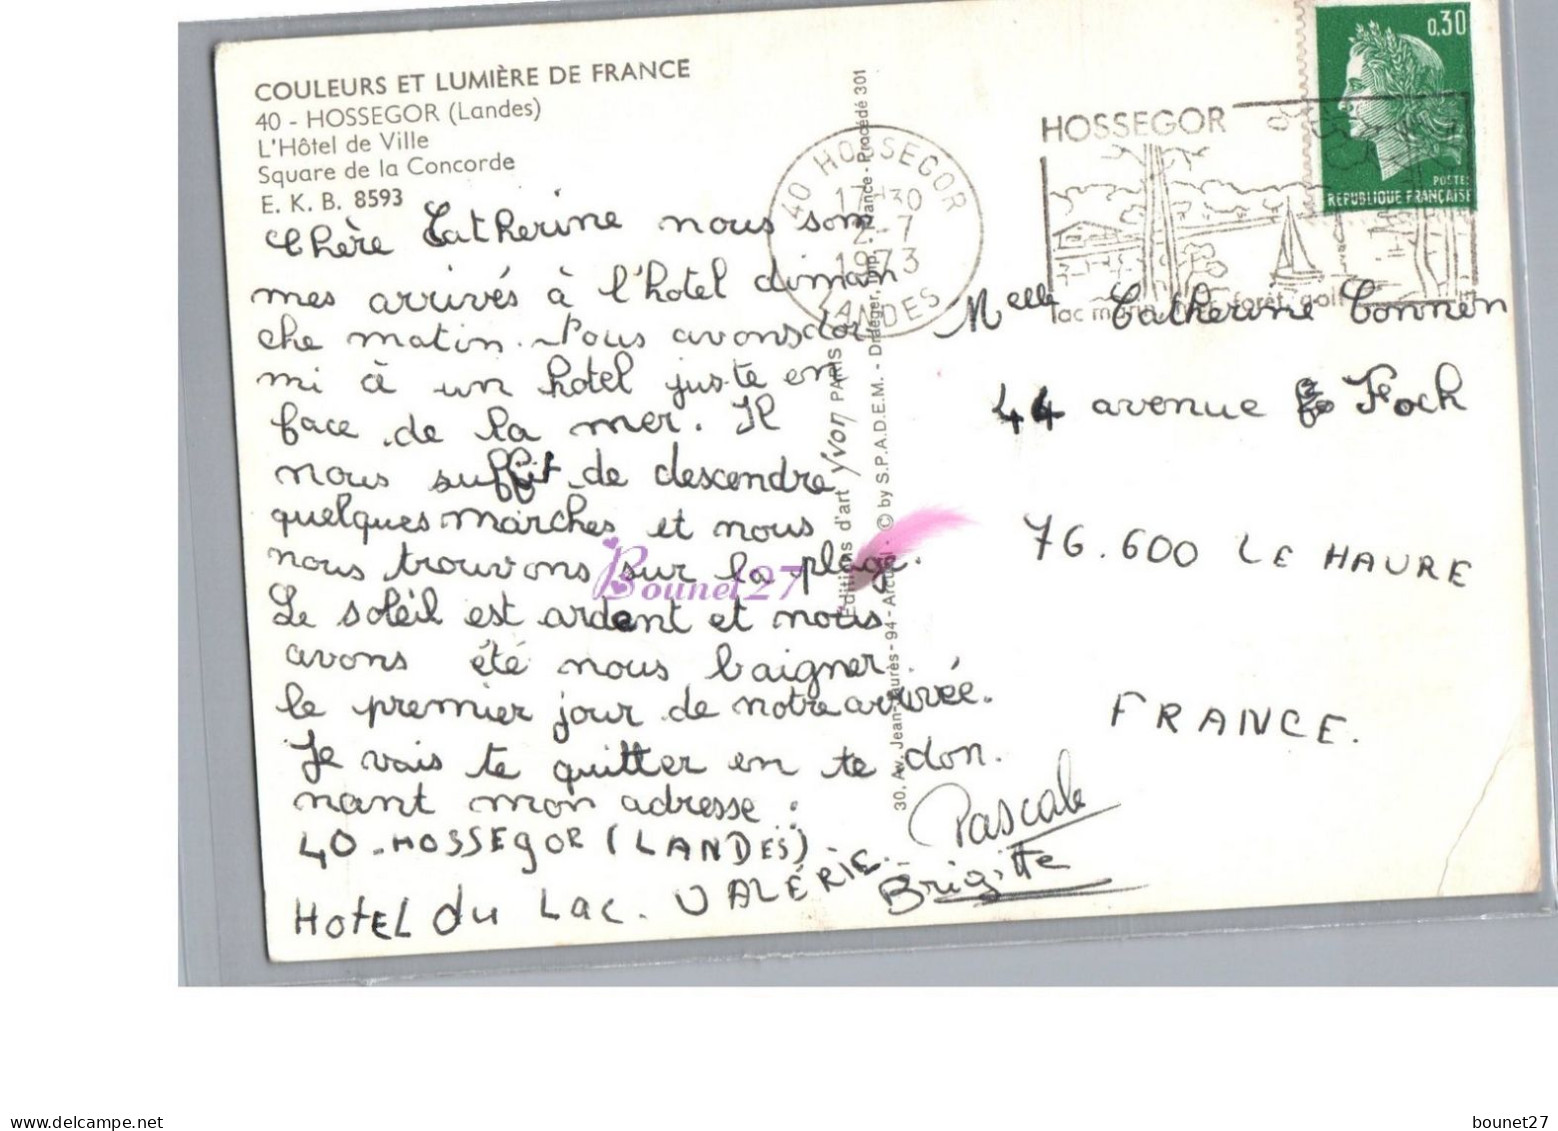 COULEURS ET LUMIÈRE DE FRANCE
40 - HOSSEGOR (Landes)
L'Hôtel de Ville
Square de la Concorde
E. K. B. 8593
Chère Catherine nous som
mes arrivés à l'hotel diman
che matin. Nous avons dor
mi à un hotel juste en
face de la mer. Il
nous suffit de descendre
quelques marches et nous
nous trouvons sur la plage.
Le soleil est ardent et nous
avons été nous baigner
le premier jour de notre arrivée.
Je vais te quitter en te don.
nant mon adresse :
40 - HOSSEgOR (LANDES)
HOTEL du LAC. VALÉRIE
Pascale
Brigitte
Editions d'art Yvon PARIS
30, Av. Jean-Jaurès - 94 - Arcueil - © by S.P.A.D.E.M. - Draeger, Imp. - France - Procédé 301
40 HOSSEGOR
17H30
2-7
1973
LANDES
HOSSEGOR
lac forêt golf
0,30
POSTES
REPUBLIQUE FRANÇAISE
Melle Catherine Connen
44 avenue Foch
76.600 LE HAVRE
FRANCE.
Bounet27
delcampe.net
bounet27